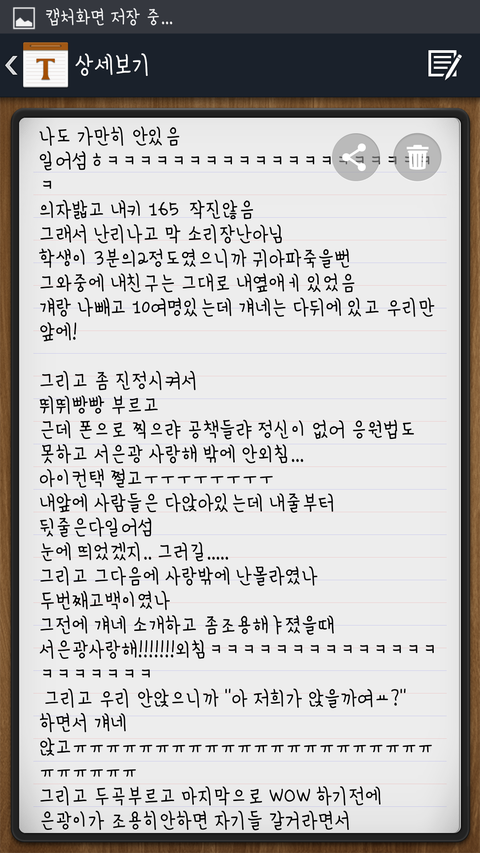 캡처화면 저장 중...
T 상세보기
나도 가만히 안있음
일어섬ㅎㅋㅋㅋㅋㅋㅋㅋㅋㅋㅋㅋㅋㅋㅋㅋㅋㅋㅋㅋㅋ
ㅋ
의자밟고 내키 165 작진않음
그래서 난리나고 막 소리장난아님
학생이 3분의2정도였으니까 귀아파죽을뻔
그와중에 내친구는 그대로 내옆애ㅔ 있었음
걔랑 나빼고 10여명있는데 걔네는 다뒤에 있고 우리만
앞에!
그리고 좀 진정시켜서
뛰뛰빵빵 부르고
근데 폰으로 찍으랴 공책들랴 정신이 없어 응원법도
못하고 서은광 사랑해 밖에 안외침...
아이컨택 쩔고ㅜㅜㅜㅜㅜㅜㅜㅜ
내앞에 사람들은 다앉아있는데 내줄부터
뒷줄은다일어섬
눈에 띄었겠지.. 그러길.....
그리고 그다음에 사랑밖에 난몰라였나
두번째고백이였나
그전에 걔네 소개하고 좀조용해ㅑ졌을때
서은광사랑해!!!!!!!외침ㅋㅋㅋㅋㅋㅋㅋㅋㅋㅋㅋㅋㅋㅋ
ㅋㅋㅋㅋㅋㅋㅋ
그리고 우리 안앉으니까 "아 저희가 앉을까여ㅛ?"
하면서 걔네
앉고ㅠㅠㅠㅠㅠㅠㅠㅠㅠㅠㅠㅠㅠㅠㅠㅠㅠㅠㅠㅠㅠㅠ
ㅠㅠㅠㅠㅠㅠ
그리고 두곡부르고 마지막으로 WOW 하기전에
은광이가 조용히안하면 자기들 갈거라면서